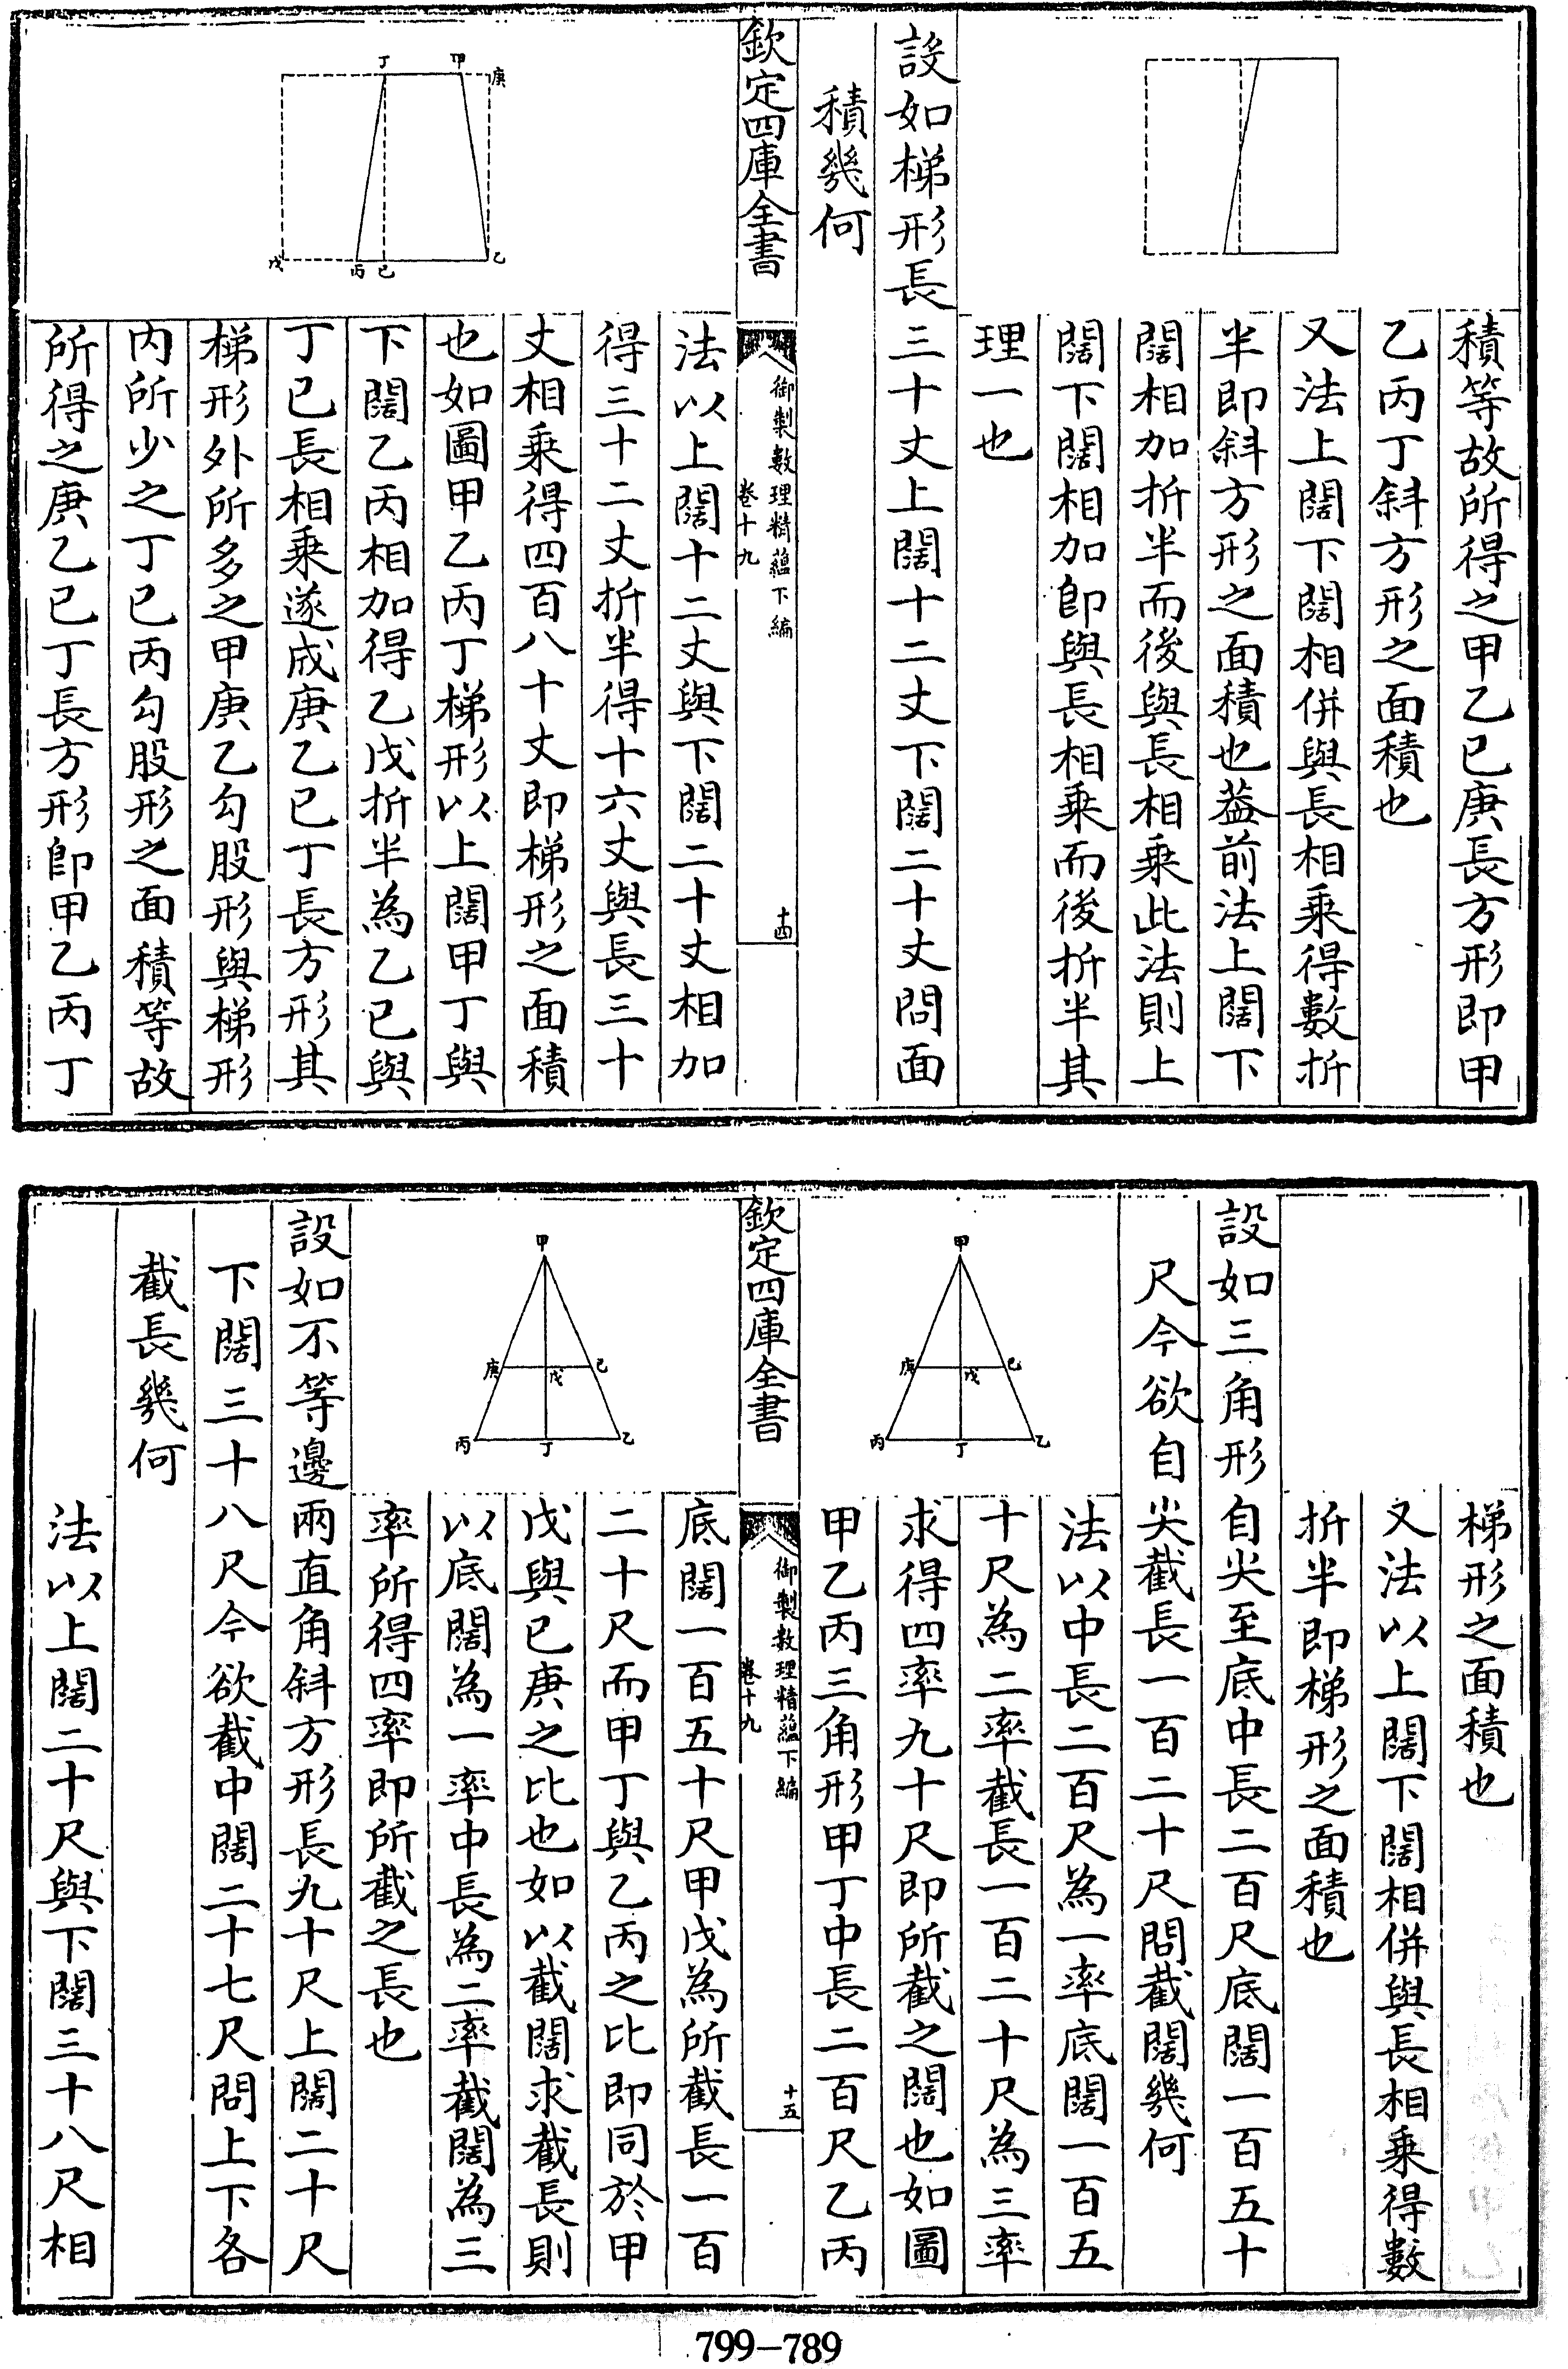 積等故所得之甲乙已庚長方形即甲
乙丙丁斜方形之面積也
又法上闊下闊相併與長相乘得數折
半即斜方形之面積也葢前法上闊下
闊相加折半而後與長相乘此法則上
闊下闊相加即與長相乘而後折半其
理一也
設如梯形長三十丈上闊十二丈下闊二十丈問面
積幾何
欽定四庫全書
御製數理精蘊下編
卷十九
十四
法以上闊十二丈與下闊二十丈相加
得三十二丈折半得十六丈與長三十
丈相乘得四百八十丈即梯形之面積
也如圖甲乙丙丁梯形以上闊甲丁與
下闊乙丙相加得乙戊折半為乙已與
丁已長相乘遂成庚乙已丁長方形其
梯形外所多之甲庚乙勾股形與梯形
內所少之丁已丙勾股形之面積等故
所得之庚乙已丁長方形即甲乙丙丁
丁
甲
庚
戊
丙
已
乙
梯形之面積也
又法以上闊下闊相併與長相乘得數
折半即梯形之面積也
設如三角形自尖至底中長二百尺底闊一百五十
尺今欲自尖截長一百二十尺問截闊幾何
法以中長二百尺為一率底闊一百五
十尺為二率截長一百二十尺為三率
求得四率九十尺即所截之闊也如圖
甲乙丙三角形甲丁中長二百尺乙丙
甲
庚
戊
已
丙
丁
乙
欽定四庫全書
御製數理精蘊下編
卷十九
十五
底闊一百五十尺甲戊為所截長一百
二十尺而甲丁與乙丙之比即同於甲
戊與已庚之比也如以截闊求截長則
以底闊為一率中長為二率截闊為三
率所得四率即所截之長也
甲
庚
戊
已
丙
丁
乙
設如不等邊兩直角斜方形長九十尺上闊二十尺
下闊三十八尺今欲截中闊二十七尺問上下各
截長幾何
法以上闊二十尺與下闊三十八尺相
799-789